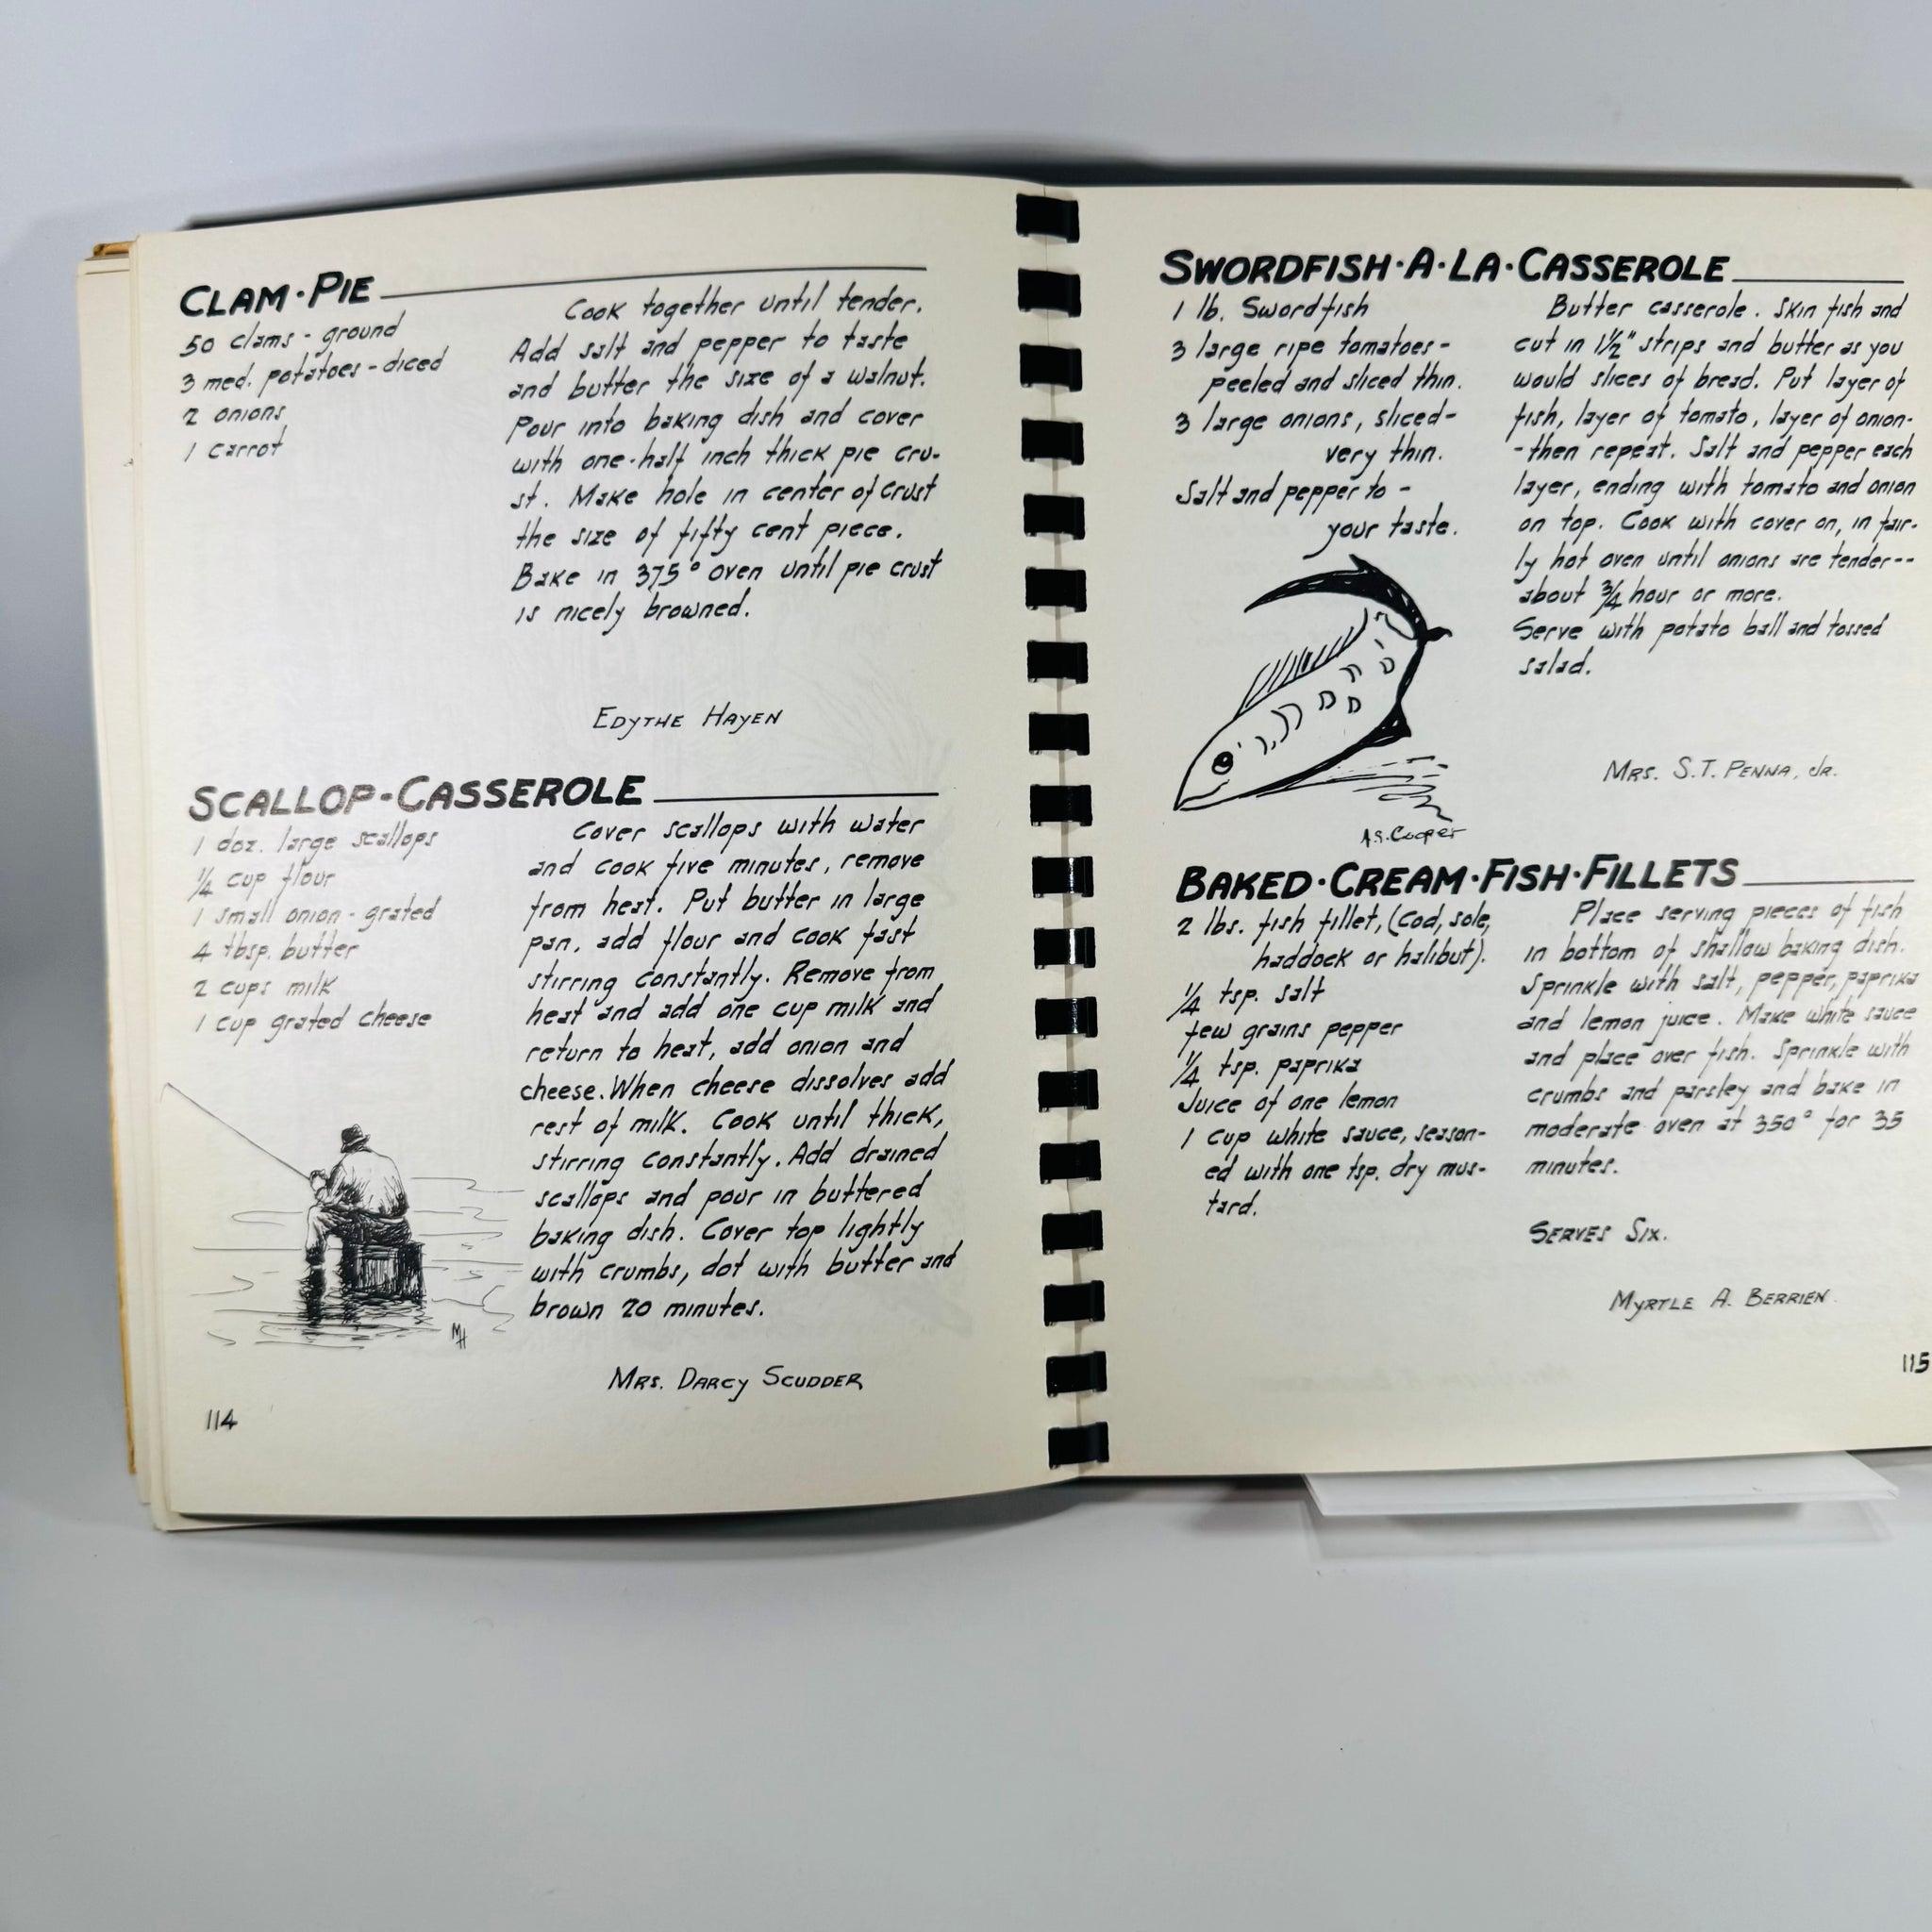 CLAM·PIE
50 clams - ground
3 med. potatoes - diced
2 onions
1 carrot
Cook together until tender.
Add salt and pepper to taste
and butter the size of a walnut.
Pour into baking dish and cover
with one-half inch thick pie cru-
st. Make hole in center of crust
the size of fifty cent piece.
Bake in 375° oven until pie crust
is nicely browned.
EDYTHE HAYEN
SCALLOP-CASSEROLE
1 doz. large scallops
1/4 cup flour
1 small onion - grated
4 tbsp. butter
2 cups milk
1 cup grated cheese
Cover scallops with water
and cook five minutes, remove
from heat. Put butter in large
pan, add flour and cook fast
stirring constantly. Remove from
heat and add one cup milk and
return to heat, add onion and
cheese. When cheese dissolves add
rest of milk. Cook until thick,
stirring constantly. Add drained
scallops and pour in buttered
baking dish. Cover top lightly
with crumbs, dot with butter and
brown 20 minutes.
MH
MRS. DARCY SCUDDER
114
SWORDFISH·A·LA·CASSEROLE
1 lb. Swordfish
3 large ripe tomatoes -
peeled and sliced thin.
3 large onions, sliced -
very thin.
Salt and pepper to -
your taste.
Butter casserole. Skin fish and
cut in 1½" strips and butter as you
would slices of bread. Put layer of
fish, layer of tomato, layer of onion-
-then repeat. Salt and pepper each
layer, ending with tomato and onion
on top. Cook with cover on, in fair-
ly hot oven until onions are tender--
about 3/4 hour or more.
Serve with potato ball and tossed
salad.
MRS. S.T. PENNA, JR.
A.S. Cooper
BAKED·CREAM·FISH·FILLETS
2 lbs. fish fillet, (cod, sole,
haddock or halibut).
1/4 tsp. salt
few grains pepper
1/4 tsp. paprika
Juice of one lemon
1 cup white sauce, season-
ed with one tsp. dry mus-
tard.
Place serving pieces of fish
in bottom of shallow baking dish.
Sprinkle with salt, pepper, paprika
and lemon juice. Make white sauce
and place over fish. Sprinkle with
crumbs and parsley and bake in
moderate oven at 350° for 35
minutes.
SERVES SIX.
MYRTLE A. BERRIEN
115